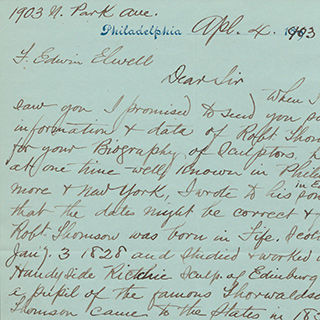 1903 N. Park Ave.
Philadelphia Apl. 4. 1903
F. Edwin Elwell
Dear Sir
When I
saw you I promised to send you
information & data of Robt Thom
for your Biography of Sculptors,
at one time well known in Phila
more & New York, I wrote to his son
in E
that the dates might be correct &
Robt Thomson was born in Fife. Scotl
Jany. 3 1828 and studied & worked
Handyside Ritchie Sculp. of Edinburg
a pupil of the famous Thorwaldse
Thomson came to the States in 185